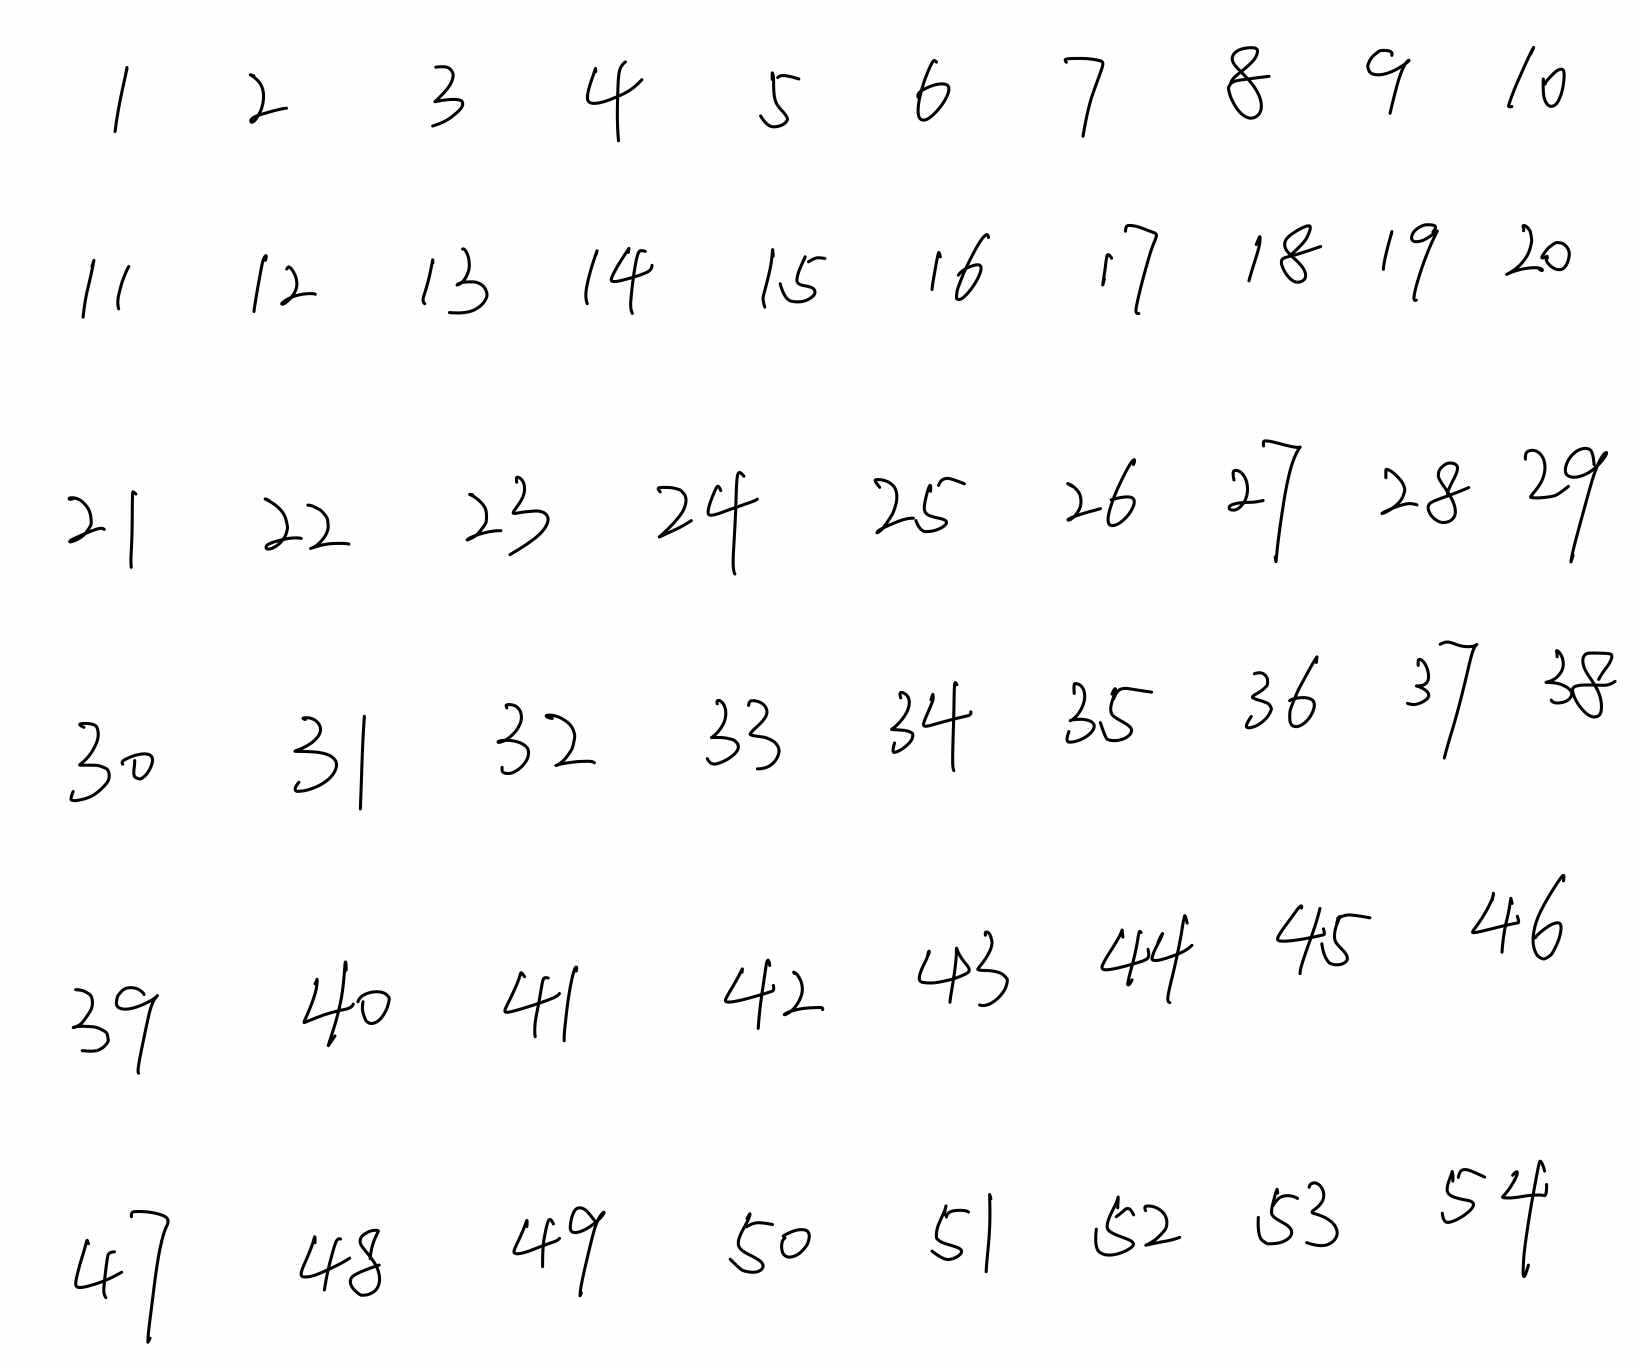 1 2 3 4 5 6 7 8 9 10
11 12 13 14 15 16 17 18 19 20
21 22 23 24 25 26 27 28 29
30 31 32 33 34 35 36 37 38
39 40 41 42 43 44 45 46
47 48 49 50 51 52 53 54